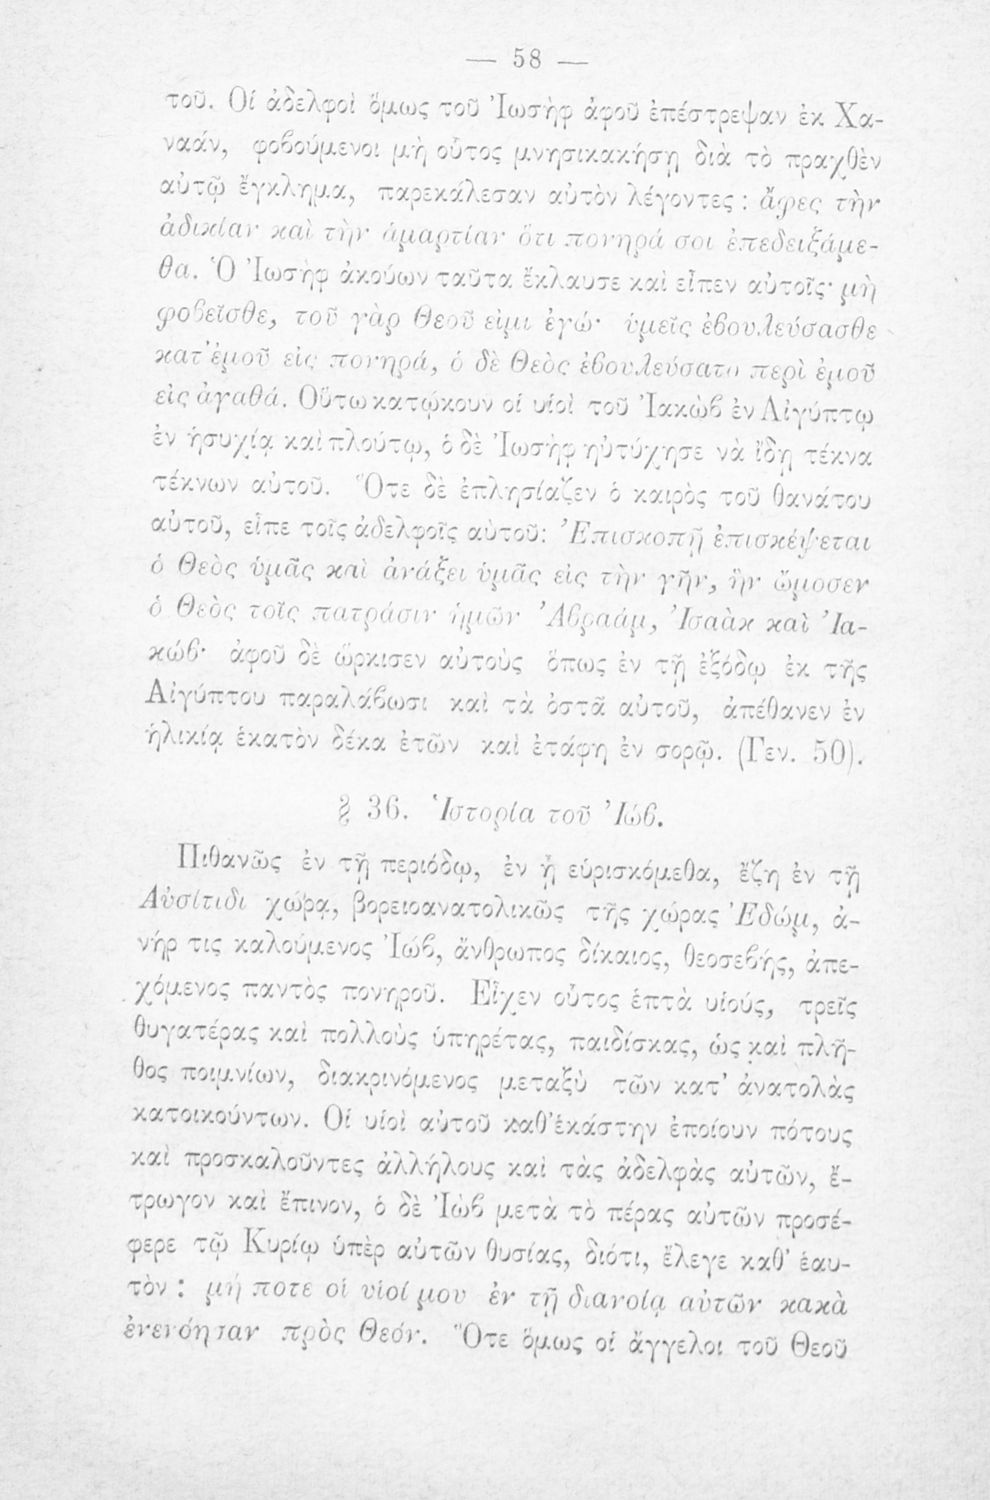 — 58 —
τοῦ. Οἱ ἀδελφοὶ ὅμως τοῦ Ἰωσὴφ ἀφοῦ ἐπέστρεψαν ἐκ Χα-
ναάν, φοβούμενοι μὴ οὗτος μνησικακήσῃ διὰ τὸ πραχθὲν
αὐτῷ ἔγκλημα, παρεκάλεσαν αὐτὸν λέγοντες : ἄφες τὴν
ἀδικίαν καὶ τὴν ἁμαρτίαν ὅτι πονηρά σοι ἐπεδειξάμε-
θα. Ὁ Ἰωσὴφ ἀκούων ταῦτα ἔκλαυσε καὶ εἶπεν αὐτοῖς· μὴ
φοβεῖσθε, τοῦ γὰρ Θεοῦ εἰμι ἐγώ· ὑμεῖς ἐβουλεύσασθε
κατ᾽ἐμοῦ εἰς πονηρά, ὁ δὲ Θεὸς ἐβουλεύσατο περὶ ἐμοῦ
εἰς ἀγαθά. Οὕτω κατῴκουν οἱ υἱοὶ τοῦ Ἰακὼβ ἐν Αἰγύπτῳ
ἐν ἡσυχίᾳ καὶ πλούτῳ, ὁ δὲ Ἰωσὴφ ηὐτύχησε νὰ ἴδῃ τέκνα
τέκνων αὐτοῦ. Ὅτε δὲ ἐπλησίαζεν ὁ καιρὸς τοῦ θανάτου
αὐτοῦ, εἶπε τοῖς ἀδελφοῖς αὐτοῦ: Ἐπισκοπῇ ἐπισκέψεται
ὁ Θεὸς ὑμᾶς καὶ ἀνάξει ὑμᾶς εἰς τὴν γῆν, ἣν ὤμοσεν
ὁ Θεὸς τοῖς πατράσιν ἡμῶν Ἀβραάμ, Ἰσαὰκ καὶ Ἰα-
κώβ· ἀφοῦ δὲ ὥρκισεν αὐτοὺς ὅπως ἐν τῇ ἐξόδῳ ἐκ τῆς
Αἰγύπτου παραλάβωσι καὶ τὰ ὀστᾶ αὐτοῦ, ἀπέθανεν ἐν
ἡλικίᾳ ἑκατὸν δέκα ἐτῶν καὶ ἐτάφη ἐν σορῷ. (Γεν. 50).
§ 36. Ἱστορία τοῦ Ἰώβ.
Πιθανῶς ἐν τῇ περιόδῳ, ἐν ᾗ εὑρισκόμεθα, ἔζη ἐν τῇ
Αὐσίτιδι χώρᾳ, βορειοανατολικῶς τῆς χώρας Ἐδώμ, ἀ-
νήρ τις καλούμενος Ἰώβ, ἄνθρωπος δίκαιος, θεοσεβής, ἀπε-
χόμενος παντὸς πονηροῦ. Εἶχεν οὗτος ἑπτὰ υἱούς, τρεῖς
θυγατέρας καὶ πολλοὺς ὑπηρέτας, παιδίσκας, ὡς καὶ πλῆ-
θος ποιμνίων, διακρινόμενος μεταξὺ τῶν κατ᾽ ἀνατολὰς
κατοικούντων. Οἱ υἱοὶ αὐτοῦ καθ᾽ἑκάστην ἐποίουν πότους
καὶ προσκαλοῦντες ἀλλήλους καὶ τὰς ἀδελφὰς αὐτῶν, ἔ-
τρωγον καὶ ἔπινον, ὁ δὲ Ἰὼβ μετὰ τὸ πέρας αὐτῶν προσέ-
φερε τῷ Κυρίῳ ὑπὲρ αὐτῶν θυσίας, διότι, ἔλεγε καθ᾽ ἑαυ-
τὸν : μή ποτε οἱ υἱοί μου ἐν τῇ διανοίᾳ αὐτῶν κακὰ
ἐνενόησαν πρὸς Θεόν. Ὅτε ὅμως οἱ ἄγγελοι τοῦ Θεοῦ